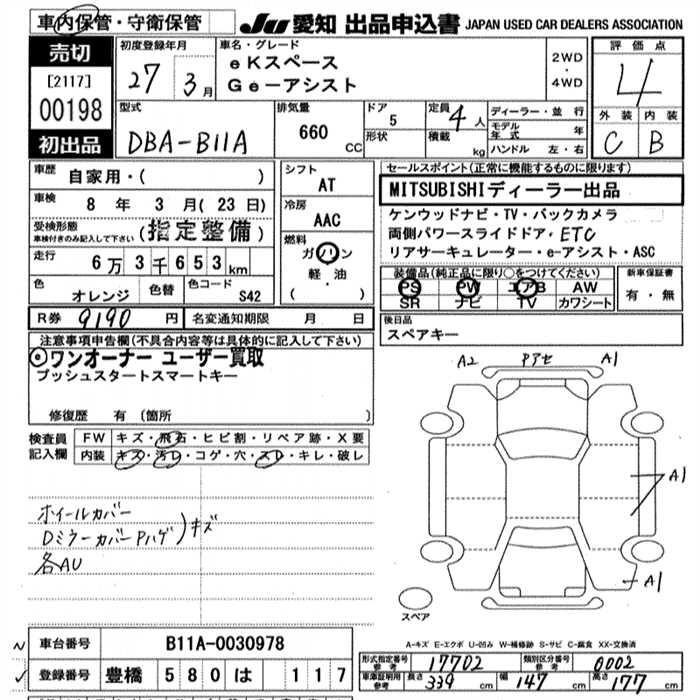 車内保管・守衛保管
JU 愛知 出品申込書 JAPAN USED CAR DEALERS ASSOCIATION
売切
[2117]
00198
初出品
初度登録年月
27 3月
車名・グレード
eKスペース
Ge－アシスト
2WD
・
4WD
評価点
4
外装 内装
C B
型式
DBA-B11A
排気量
660 CC
ドア
5
形状
定員 4人
積載 kg
ディーラー・並行
モデル年式 年
ハンドル 左・右
車歴 自家用・( )
車検 8年 3月(23日)
受検形態
車検付きのみ記入して下さい
(指定整備)
走行 6万3千653km
色 オレンジ
色替
色コード S42
シフト
AT
冷房
AAC
燃料
ガソリン
軽・油
( )
R券 9190円
名変通知期限 月 日
セールスポイント(正常に機能するものに限ります)
MITSUBISHIディーラー出品
ケンウッドナビ・TV・バックカメラ
両側パワースライドドア・ETC
リアサーキュレーター・e-アシスト・ASC
装備品(純正品に限り○をつけてください)
PS PW エアB AW
SR ナビ TV カワシート
新車保証書
有・無
後日品
スペアキー
注意事項申告欄(不具合内容等は具体的に記入して下さい)
◎ワンオーナー ユーザー買取
プッシュスタートスマートキー
修復歴 有 (箇所 )
検査員記入欄
FW キズ・飛石・ヒビ割・リペア跡・X要
内装 キズ・汚レ・コゲ・穴・スレ・キレ・破レ
ホイールカバー
DミラーカバーPハゲ)キズ
各AU
A2 Pアセ A1
A1
A1
スペア
A-キズ E-エクボ U-凹み W-補修跡 S-サビ C-腐食 XX-交換済
車台番号 B11A-0030978
登録番号 豊橋 580 は 117
形式指定番号参考 17702
類別区分番号参考 0002
車庫証明用参考 長さ 339cm 幅 147cm 高さ 177cm